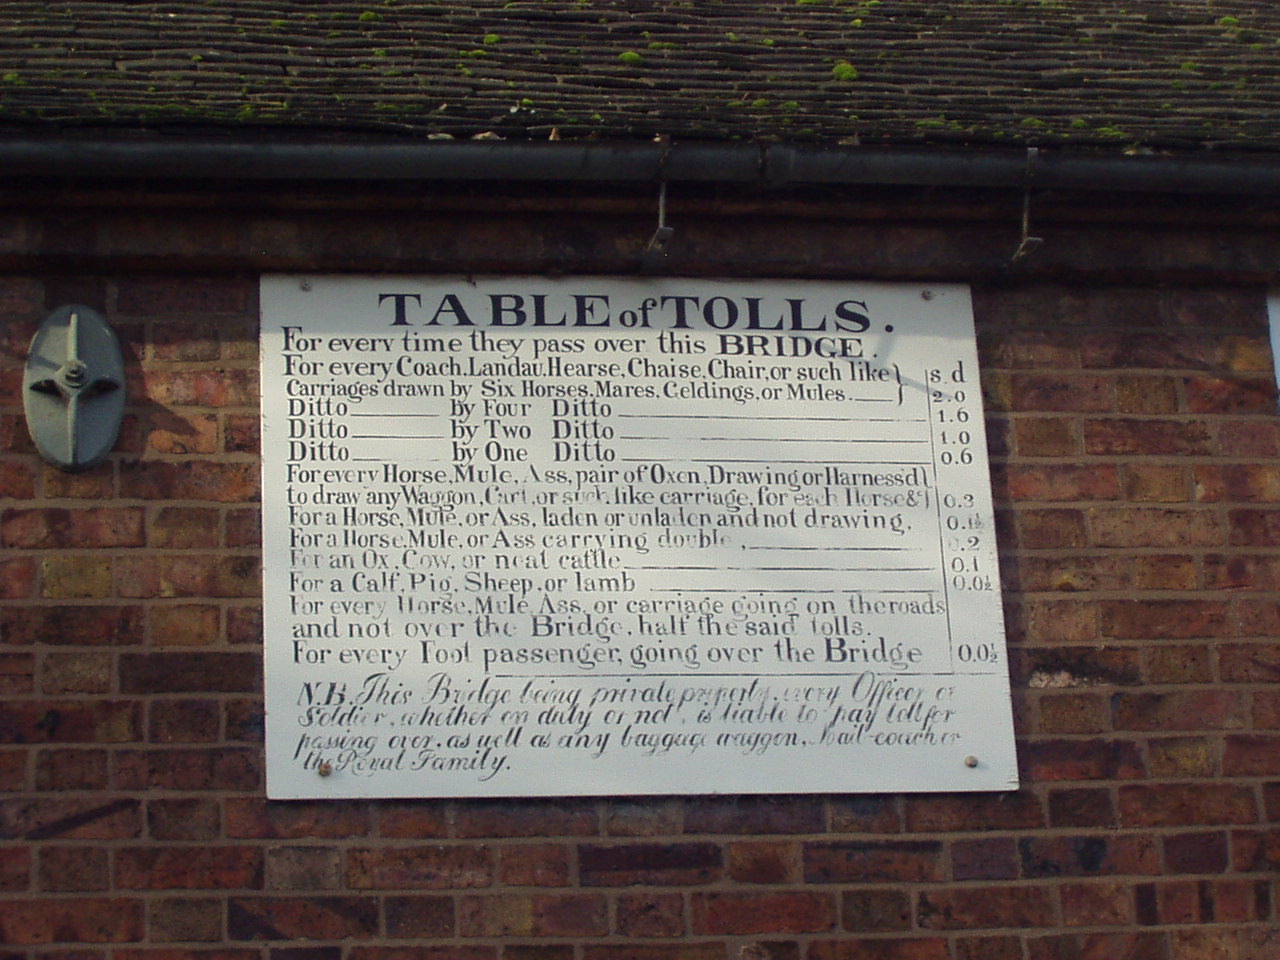 TABLE of TOLLS.
For every time they pass over this BRIDGE.
For every Coach, Landau, Hearse, Chaise, Chair, or such like } s. d
Carriages drawn by Six Horses, Mares, Geldings, or Mules. 2.0
Ditto by Four Ditto 1.6
Ditto by Two Ditto 1.0
Ditto by One Ditto 0.6
For every Horse, Mule, Ass, pair of Oxen, Drawing or Harness'd }
to draw any Waggon, Cart, or such like carriage, for each Horse &c } 0.3
For a Horse, Mule, or Ass, laden or unladen and not drawing, 0.1½
For a Horse, Mule, or Ass carrying double, 0.2
For an Ox, Cow, or neat cattle 0.1
For a Calf, Pig, Sheep, or lamb 0.0½
For every Horse, Mule, Ass, or carriage going on the roads
and not over the Bridge, half the said tolls.
For every Foot passenger, going over the Bridge 0.0½
N.B. This Bridge being private property, every Officer or
Soldier, whether on duty or not, is liable to pay toll for
passing over, as well as any baggage waggon, Mail-coach or
the Royal Family.